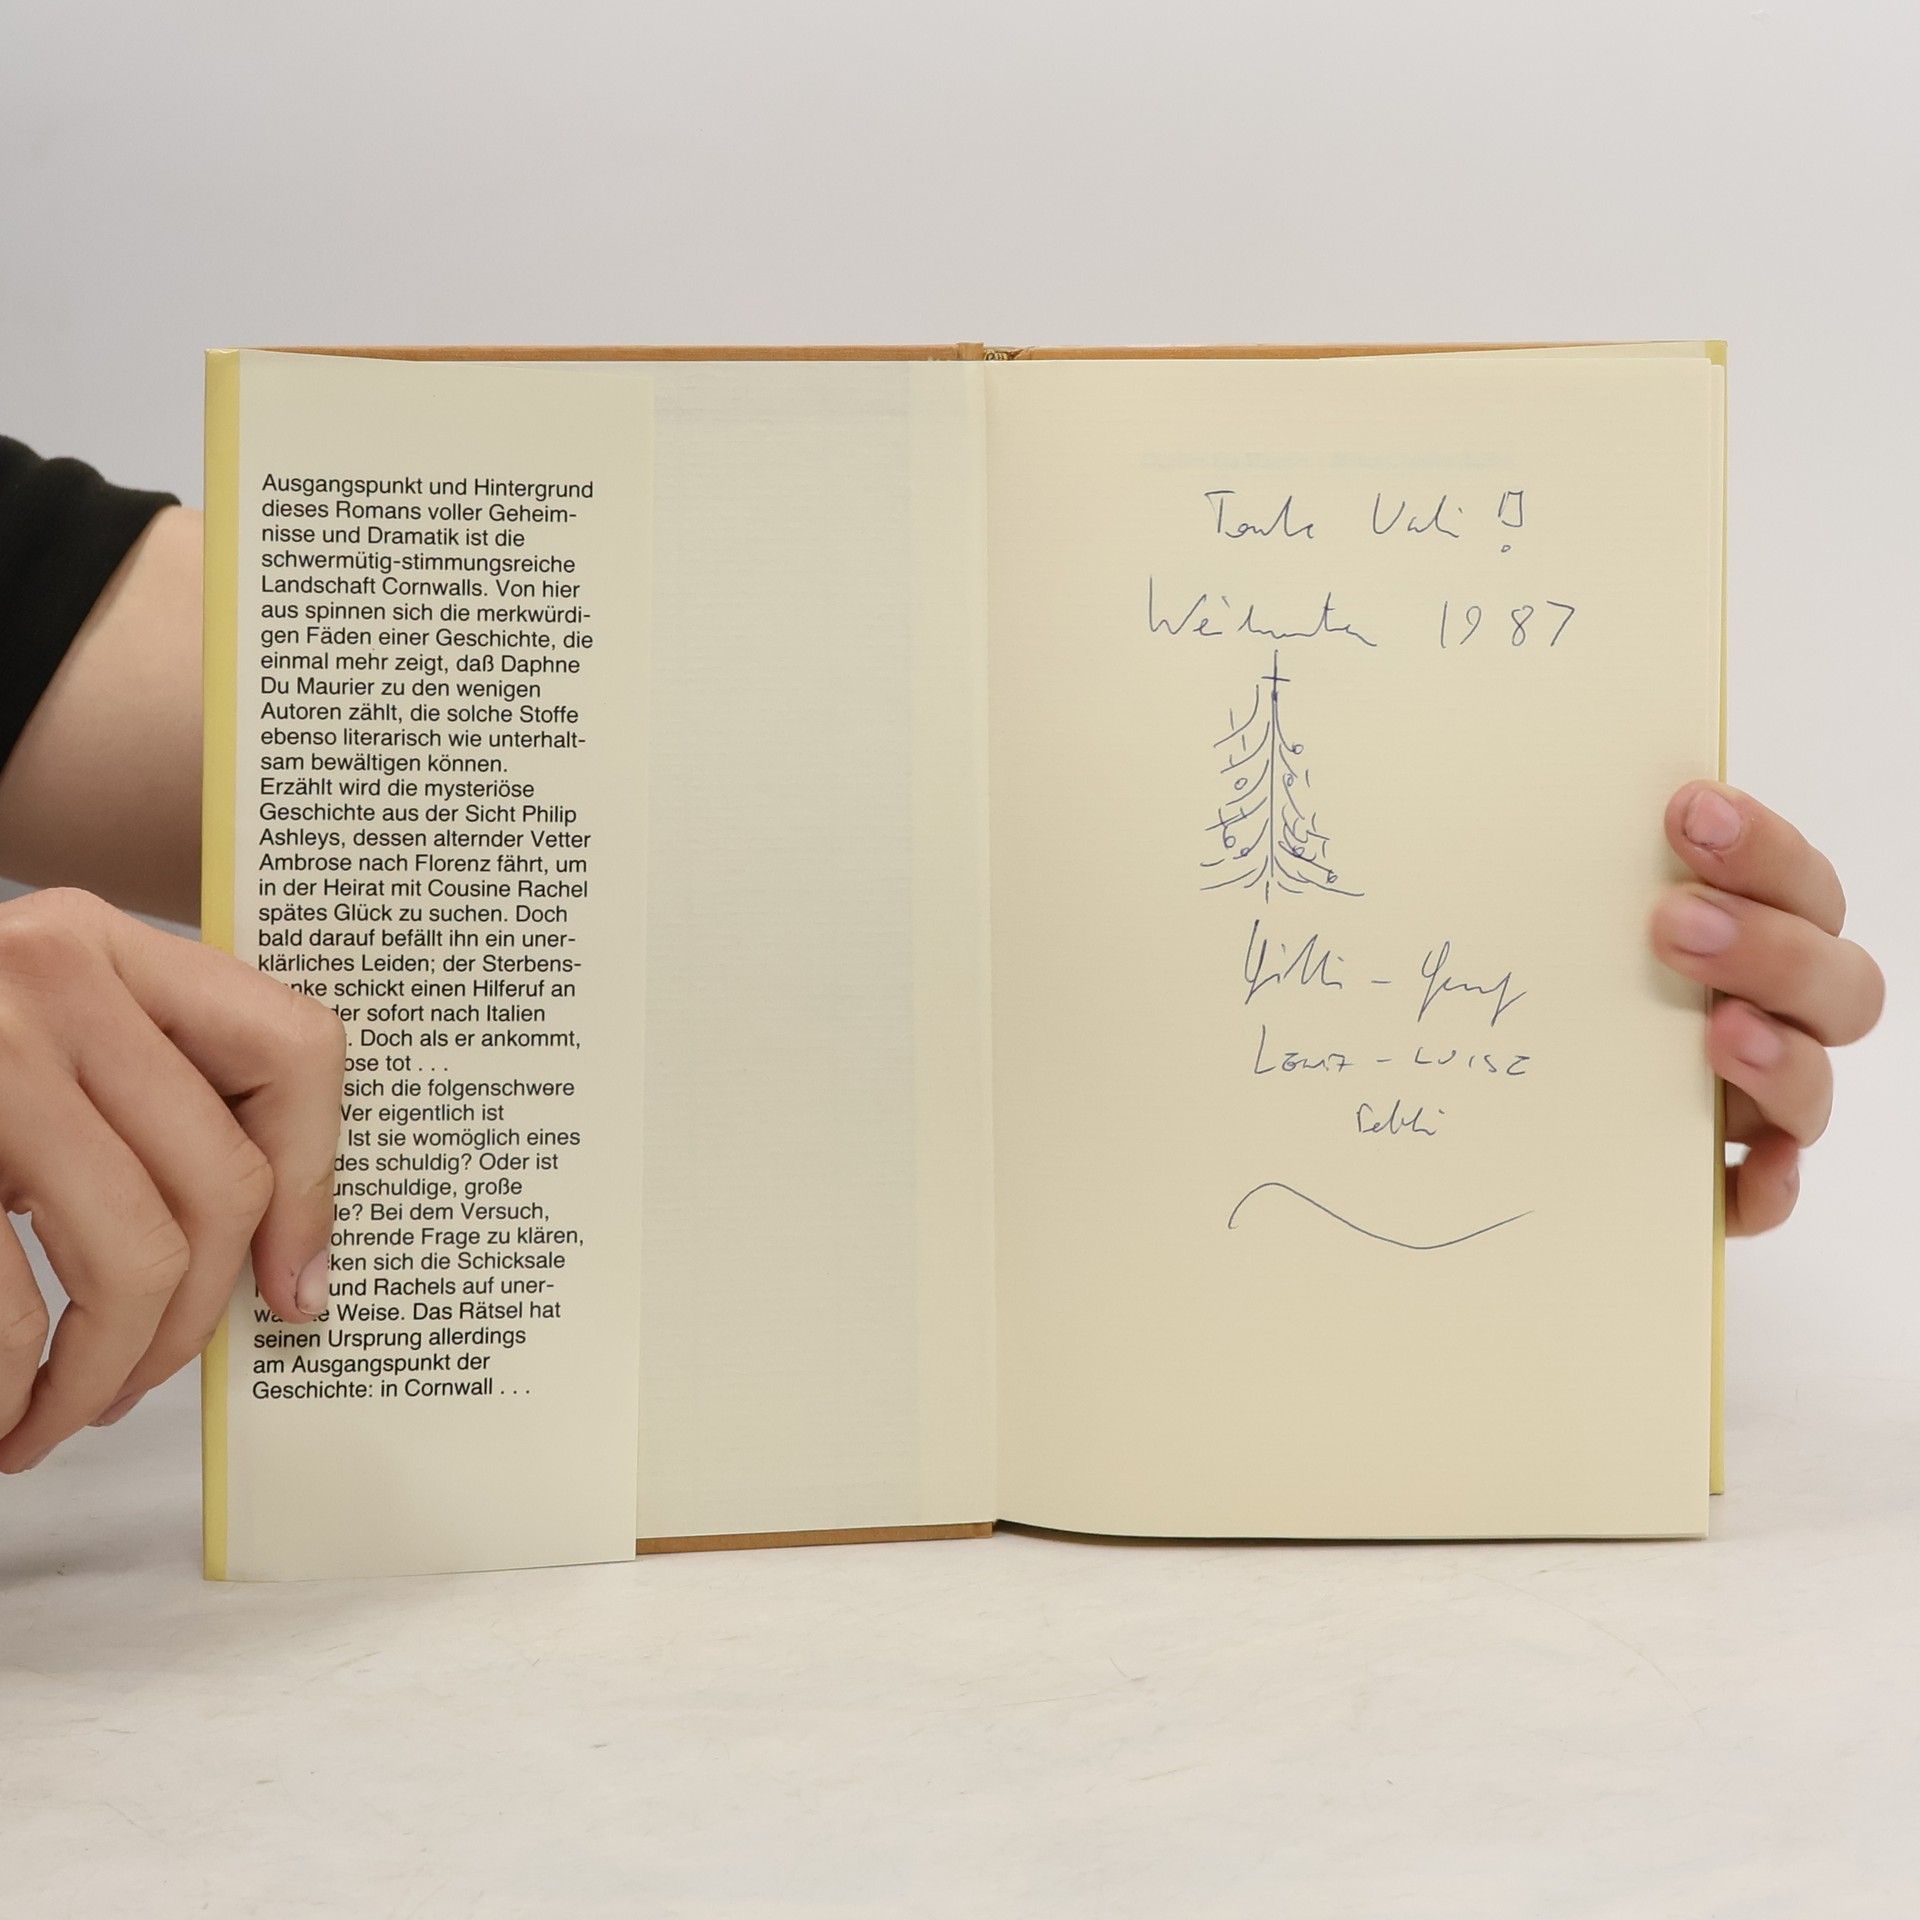 Ausgangspunkt und Hintergrund
dieses Romans voller Geheim-
nisse und Dramatik ist die
schwermütig-stimmungsreiche
Landschaft Cornwalls. Von hier
aus spinnen sich die merkwürdi-
gen Fäden einer Geschichte, die
einmal mehr zeigt, daß Daphne
Du Maurier zu den wenigen
Autoren zählt, die solche Stoffe
ebenso literarisch wie unterhalt-
sam bewältigen können.
Erzählt wird die mysteriöse
Geschichte aus der Sicht Philip
Ashleys, dessen alternder Vetter
Ambrose nach Florenz fährt, um
in der Heirat mit Cousine Rachel
spätes Glück zu suchen. Doch
bald darauf befällt ihn ein uner-
klärliches Leiden; der Sterbens-
schickt einen Hilferuf an
sofort nach Italien
Doch als er ankommt,
tot . . .
sich die folgenschwere
Wer eigentlich ist
Ist sie womöglich eines
schuldig? Oder ist
unschuldige, große
Bei dem Versuch,
Frage zu klären,
sich die Schicksale
und Rachels auf uner-
Weise. Das Rätsel hat
seinen Ursprung allerdings
am Ausgangspunkt der
Geschichte: in Cornwall . . .
Tante !
Weihnachten 1987
- LUISE